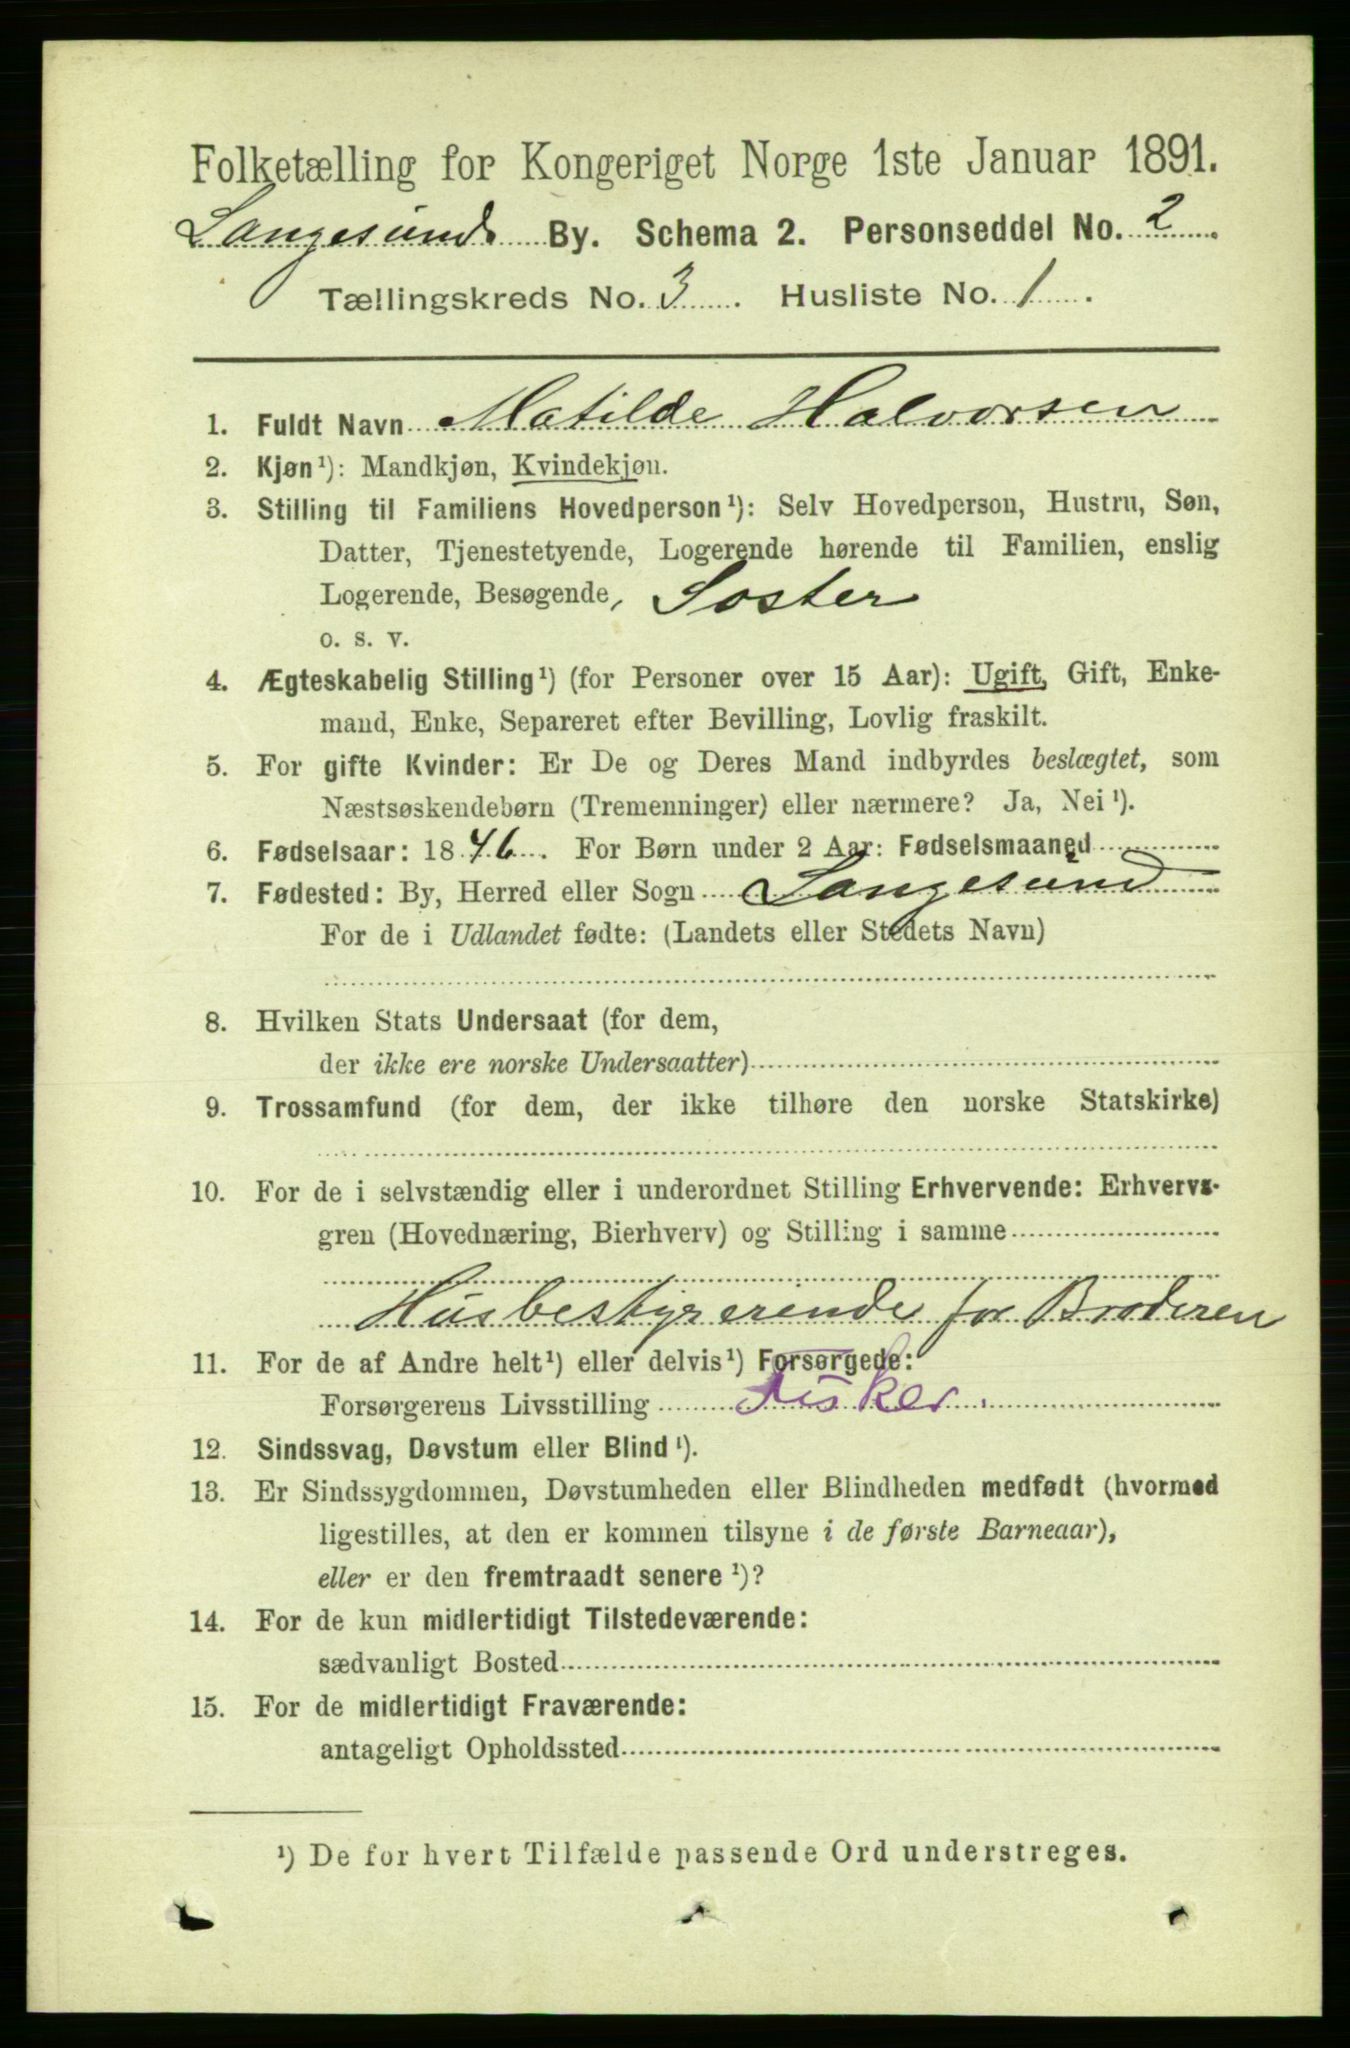 Folketælling for Kongeriget Norge 1ste Januar 1891.
Langesunds By. Schema 2. Personseddel No. 2
Tællingskreds No. 3. Husliste No. 1.
1. Fuldt Navn Matilde Halvorsen
2. Kjøn¹): Mandkjøn, Kvindekjøn.
3. Stilling til Familiens Hovedperson¹): Selv Hovedperson, Hustru, Søn,
Datter, Tjenestetyende, Logerende hørende til Familien, enslig
Logerende, Besøgende, Soster
o. s. v.
4. Ægteskabelig Stilling¹) (for Personer over 15 Aar): Ugift, Gift, Enke-
mand, Enke, Separeret efter Bevilling, Lovlig fraskilt.
5. For gifte Kvinder: Er De og Deres Mand indbyrdes beslægtet, som
Næstsøskendebørn (Tremenninger) eller nærmere? Ja, Nei¹).
6. Fødselsaar: 1846. For Børn under 2 Aar: Fødselsmaaned
7. Fødested: By, Herred eller Sogn Langesund
For de i Udlandet fødte: (Landets eller Stedets Navn)
8. Hvilken Stats Undersaat (for dem,
der ikke ere norske Undersaatter)
9. Trossamfund (for dem, der ikke tilhøre den norske Statskirke)
10. For de i selvstændig eller i underordnet Stilling Erhvervende: Erhvervs-
gren (Hovednæring, Bierhverv) og Stilling i samme
Husbestyrerinde for Broderen
11. For de af Andre helt¹) eller delvis¹) Forsørgede:
Forsørgerens Livsstilling Fisker.
12. Sindssvag, Døvstum eller Blind¹).
13. Er Sindssygdommen, Døvstumheden eller Blindheden medfødt (hvormed
ligestilles, at den er kommen tilsyne i de første Barneaar),
eller er den fremtraadt senere¹)?
14. For de kun midlertidigt Tilstedeværende:
sædvanligt Bosted
15. For de midlertidigt Fraværende:
antageligt Opholdssted
¹) De for hvert Tilfælde passende Ord understreges.